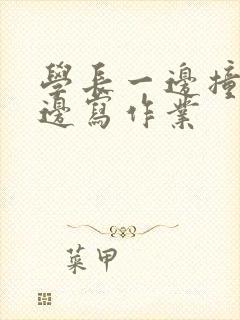 學長一邊撞
邊寫作業
菜甲